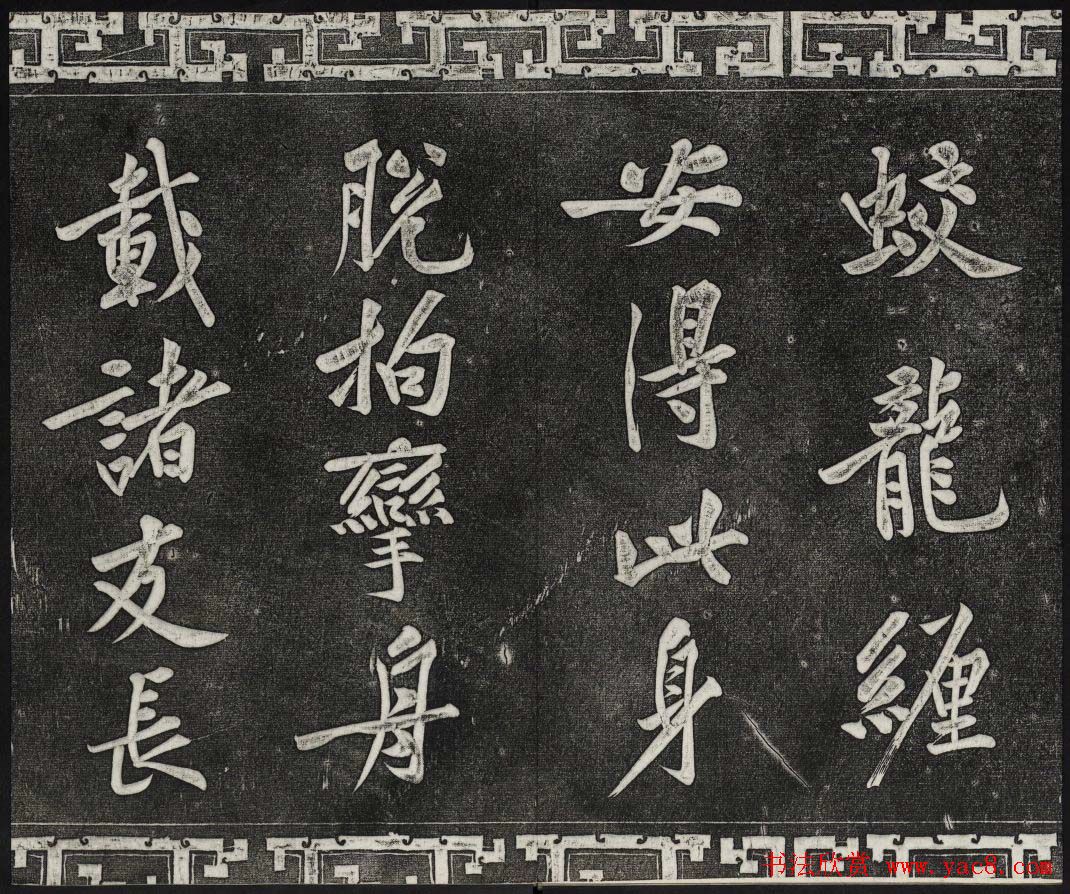 蛟龍纏
安得此身
脱拘攣舟
載諸友長
书法欣赏 www.yac8.com